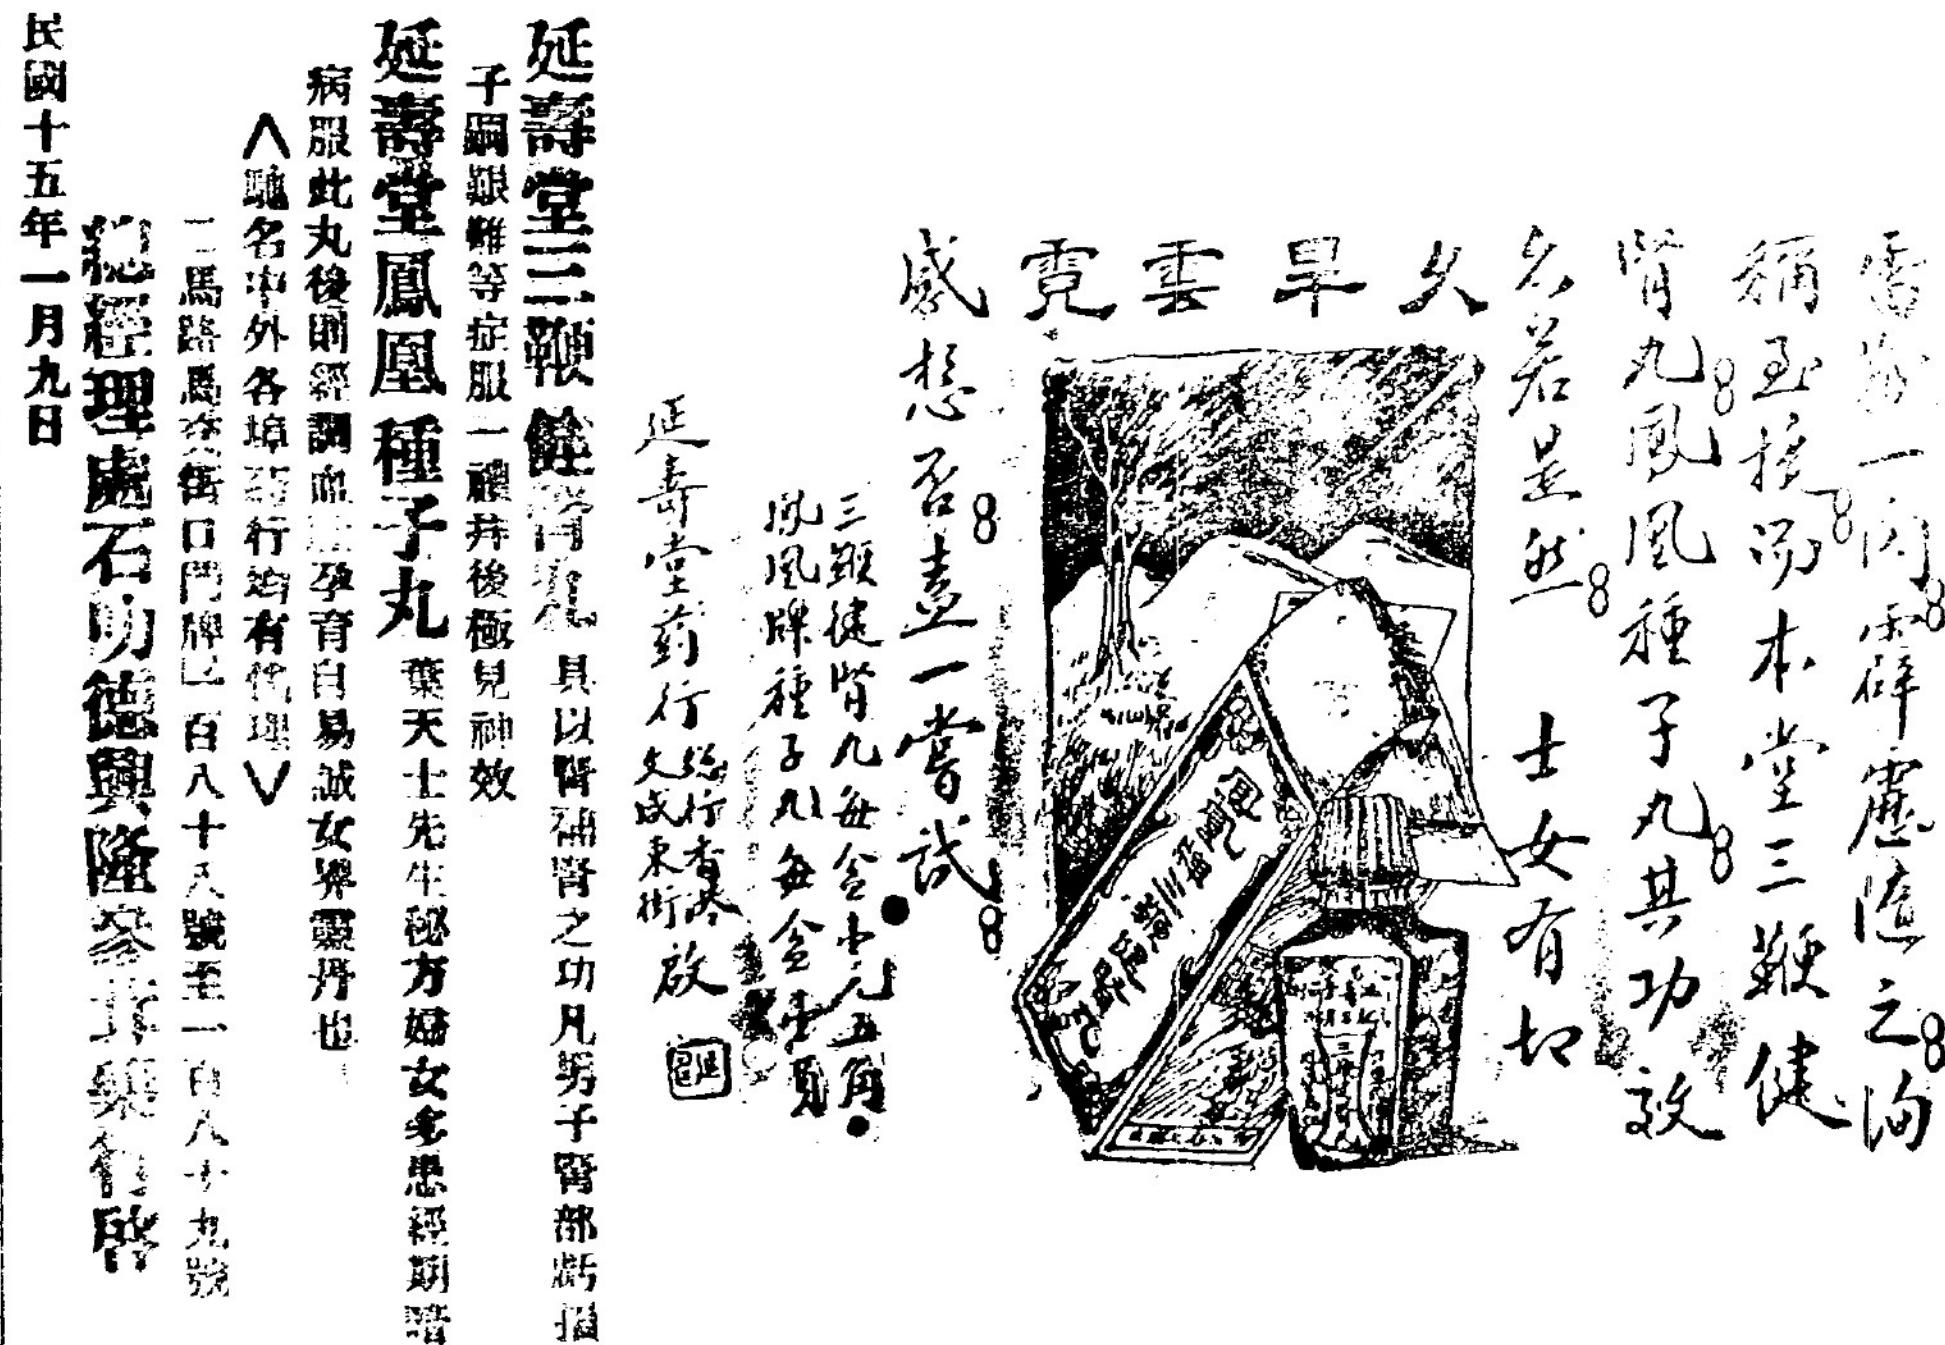 一閃霹靂隨之洵
稱至捷而本堂三鞭健
腎丸鳳凰種子丸其功效
亦若是然 士女有切
久旱雲霓
感想否盍一嘗試
三鞭健腎丸每盒壹元五角
鳳凰牌種子丸每盒壹員
延壽堂葯行 總行香港文咸東街 啟
延壽堂三鞭健腎丸 具以腎補腎之功凡男子腎部虧損
子嗣艱難等症服一禮拜後極見神效
延壽堂鳳凰種子丸 葉天士先生秘方婦女多患經期暗
病服此丸後則經調血孕育自易誠女界靈丹也
馳名中外各埠葯行均有代理
二馬路馬交街口門牌一百八十八號至一百八十九號
總經理處石叻德興隆參茸藥行啓
民國十五年一月九日